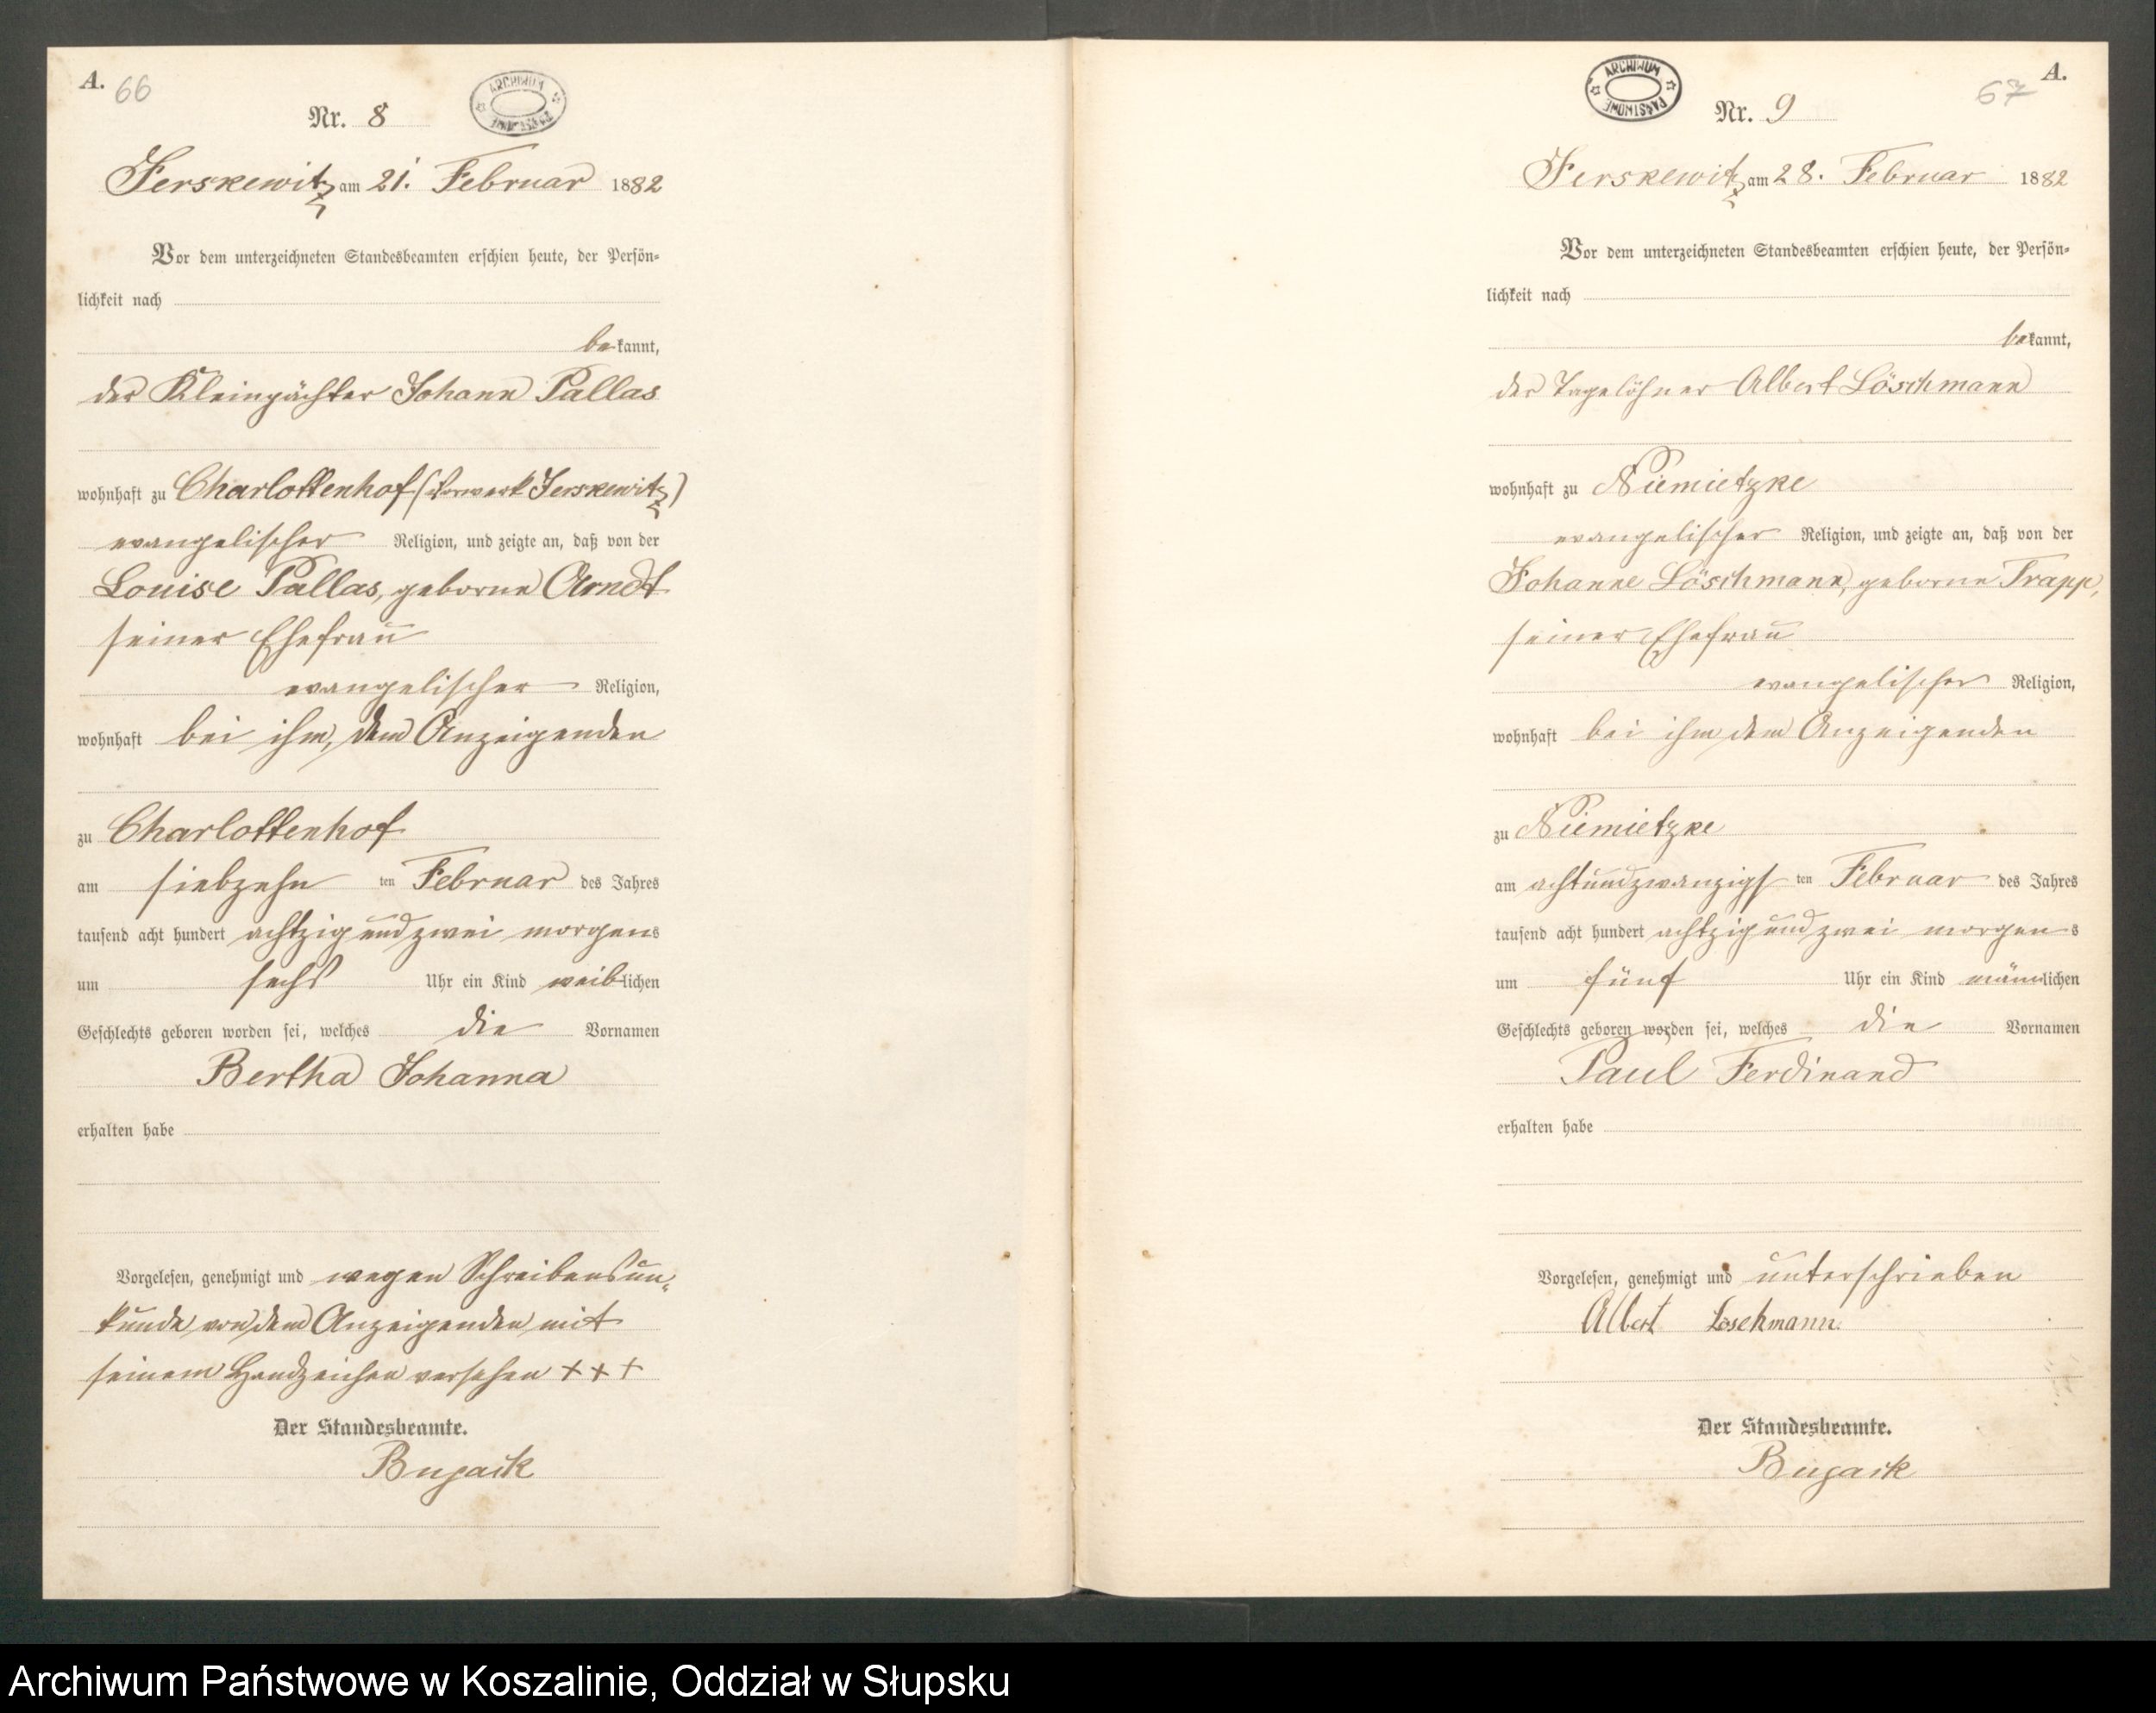 A. 66
ARCHIWUM PAŃSTWOWE
Nr. 8
Jerskewitz am 21. Februar 1882
Vor dem unterzeichneten Standesbeamten erschien heute, der Persön-
lichkeit nach
bekannt,
der Kleinpächter Johann Pallas
wohnhaft zu Charlottenhof (Vorwerk Jerskewitz)
evangelischer Religion, und zeigte an, daß von der
Louise Pallas, geborne Arndt
seiner Ehefrau
evangelischer Religion,
wohnhaft bei ihm, dem Anzeigenden
zu Charlottenhof
am siebzehn ten Februar des Jahres
tausend acht hundert achtzig und zwei morgens
um sechs Uhr ein Kind weiblichen
Geschlechts geboren worden sei, welches die Vornamen
Bertha Johanna
erhalten habe
Vorgelesen, genehmigt und wegen Schreibensun-
kunde von dem Anzeigenden mit
seinem Handzeichen versehen + + +
Der Standesbeamte.
A.
67
ARCHIWUM PAŃSTWOWE
Nr. 9
Jerskewitz am 28. Februar 1882
Vor dem unterzeichneten Standesbeamten erschien heute, der Persön-
lichkeit nach
bekannt,
der Tagelöhner Albert Löschmann
wohnhaft zu Niemietzke
evangelischer Religion, und zeigte an, daß von der
Johanne Löschmann, geborne Trapp,
seiner Ehefrau
evangelischer Religion,
wohnhaft bei ihm dem Anzeigenden
zu Niemietzke
am achtundzwanzigsten Februar des Jahres
tausend acht hundert achtzig und zwei morgens
um fünf Uhr ein Kind männlichen
Geschlechts geboren worden sei, welches die Vornamen
Paul Ferdinand
erhalten habe
Vorgelesen, genehmigt und unterschrieben
Albert Löschmann.
Der Standesbeamte.
Archiwum Państwowe w Koszalinie, Oddział w Słupsku